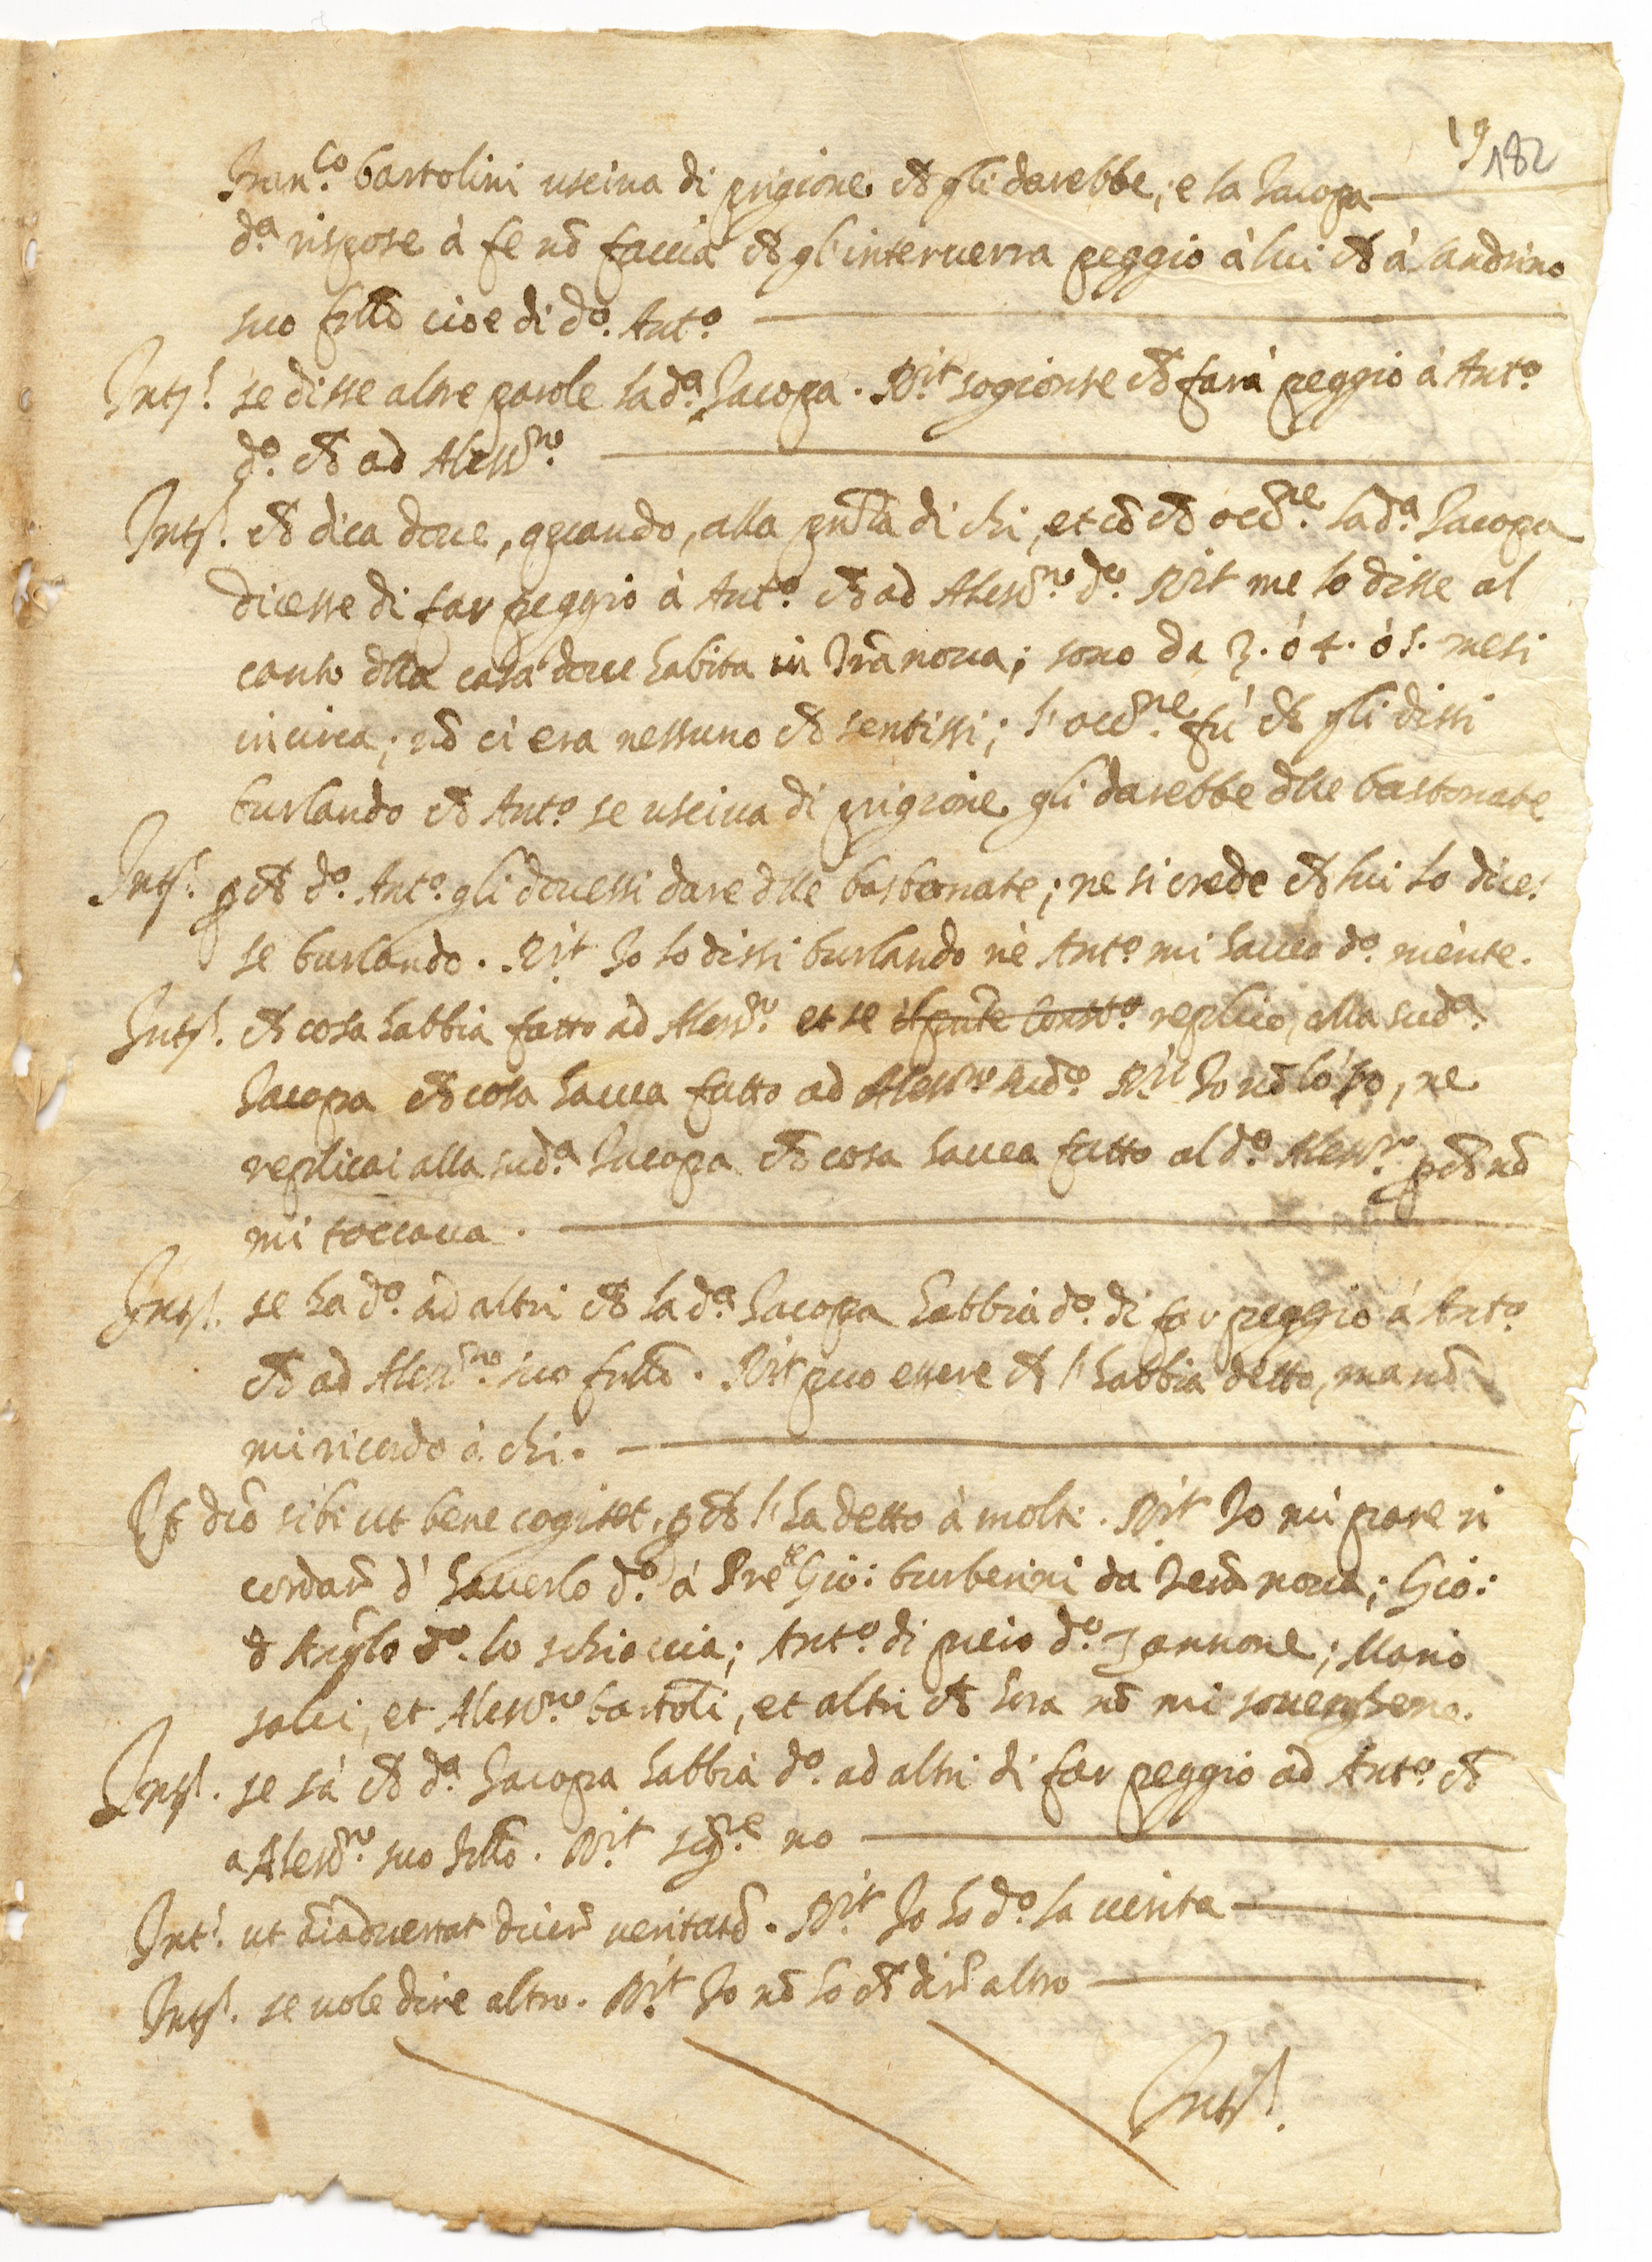 19
182
Fran.co bartolini usciua di prigione ch̃ gli darebbe, e la Jacopa
d.a rispose à fe nõ faccia ch̃ gl'interuerra peggio à lui ch̃ à sandrino
suo figlõ cioe di d.o Ant.o
Int.s se disse altre parole la d.a Jacopa. R.it sogionse ch̃ farà peggio à Ant.o
d.o ch̃ ad Aless.ro
Int.s ch̃ dica doue, quando, alla pñtia di chi, et cõ ch̃ occ.ne la d.a Jacopa
dicesse di far peggio à Ant.o ch̃ ad Aless.ro d.o R.it me lo disse al
canto dlla casa doue habita in Trãnoua; sono da 3. ò 4. ò 5. mesi
incirca; nõ ci era nessuno ch̃ sentissi; l'occ.ne fù ch̃ gli dissi
burlando ch̃ Ant.o se usciua di prigione gli darebbe dlle bastonate
Int.s p ch̃ d.o Ant.o gli douessi dare dlle bastonate; ne si crede ch̃ lui lo dices
se burlando. R.it Io lo dissi burlando nè Ant.o mi haueа d.o niente.
Int.s ch̃ cosa habbia fatto ad Aless.ro et se replicò, alla sud.a
Jacopa ch̃ cosa hauea fatto ad Aless.ro sud.o R.it Io nõ lo so, ne
replicai alla sud.a Jacopa ch̃ cosa hauea fatto al d.o Aless.ro p ch̃ nõ
mi toccaua.
Int.s se ha d.o ad altri ch̃ la d.a Jacopa habbia d.o di far peggio à Ant.o
ch̃ ad Aless.ro suo figlõ. R.it puo essere ch̃ l'habbia detto, ma nõ
mi ricordo à chi.
Et dcõ sibi ut bene cogitet, p ch̃ l'ha detto à molti. R.it Io mi pare ri
cordarm̃ d'hauerlo d.o à Pre Gio: burberini da Terã noua; Gio:
d Ang.lo d.o lo schiaccia; Ant.o di d.o Zannone; Mario
salui, et Aless.ro bartoli, et altri ch̃ hora nõ mi souenghono.
Int.s se sà ch̃ d.a Jacopa habbia d.o ad altri di far peggio ad Ant.o ch̃
a Aless.ro suo figlõ. R.it sig.re no
Int.s ut aĩaduertat dicer̃ veritatẽ. R.it Io ho d.o la uerita
Int.s se uole dire altro. R.it Io nõ ho ch̃ dir̃ altro
Int.s